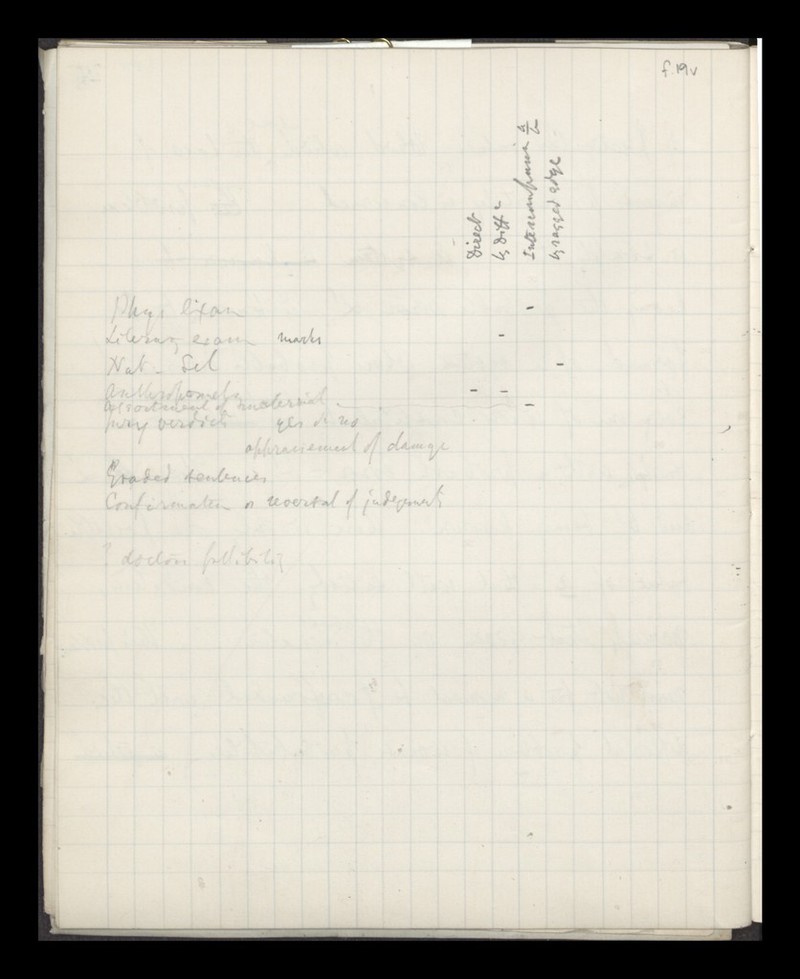 f.19v
Direct
by diffce
Intercomparison
by ragged edge
Phys Exam
Literary exam marks
Nat. Sel
Anthropometry
Assortment of material
Jury verdicts yes or no
appraisement of damage
Graded sentences
Confirmation or reversal of judgements
? doctors fallibility